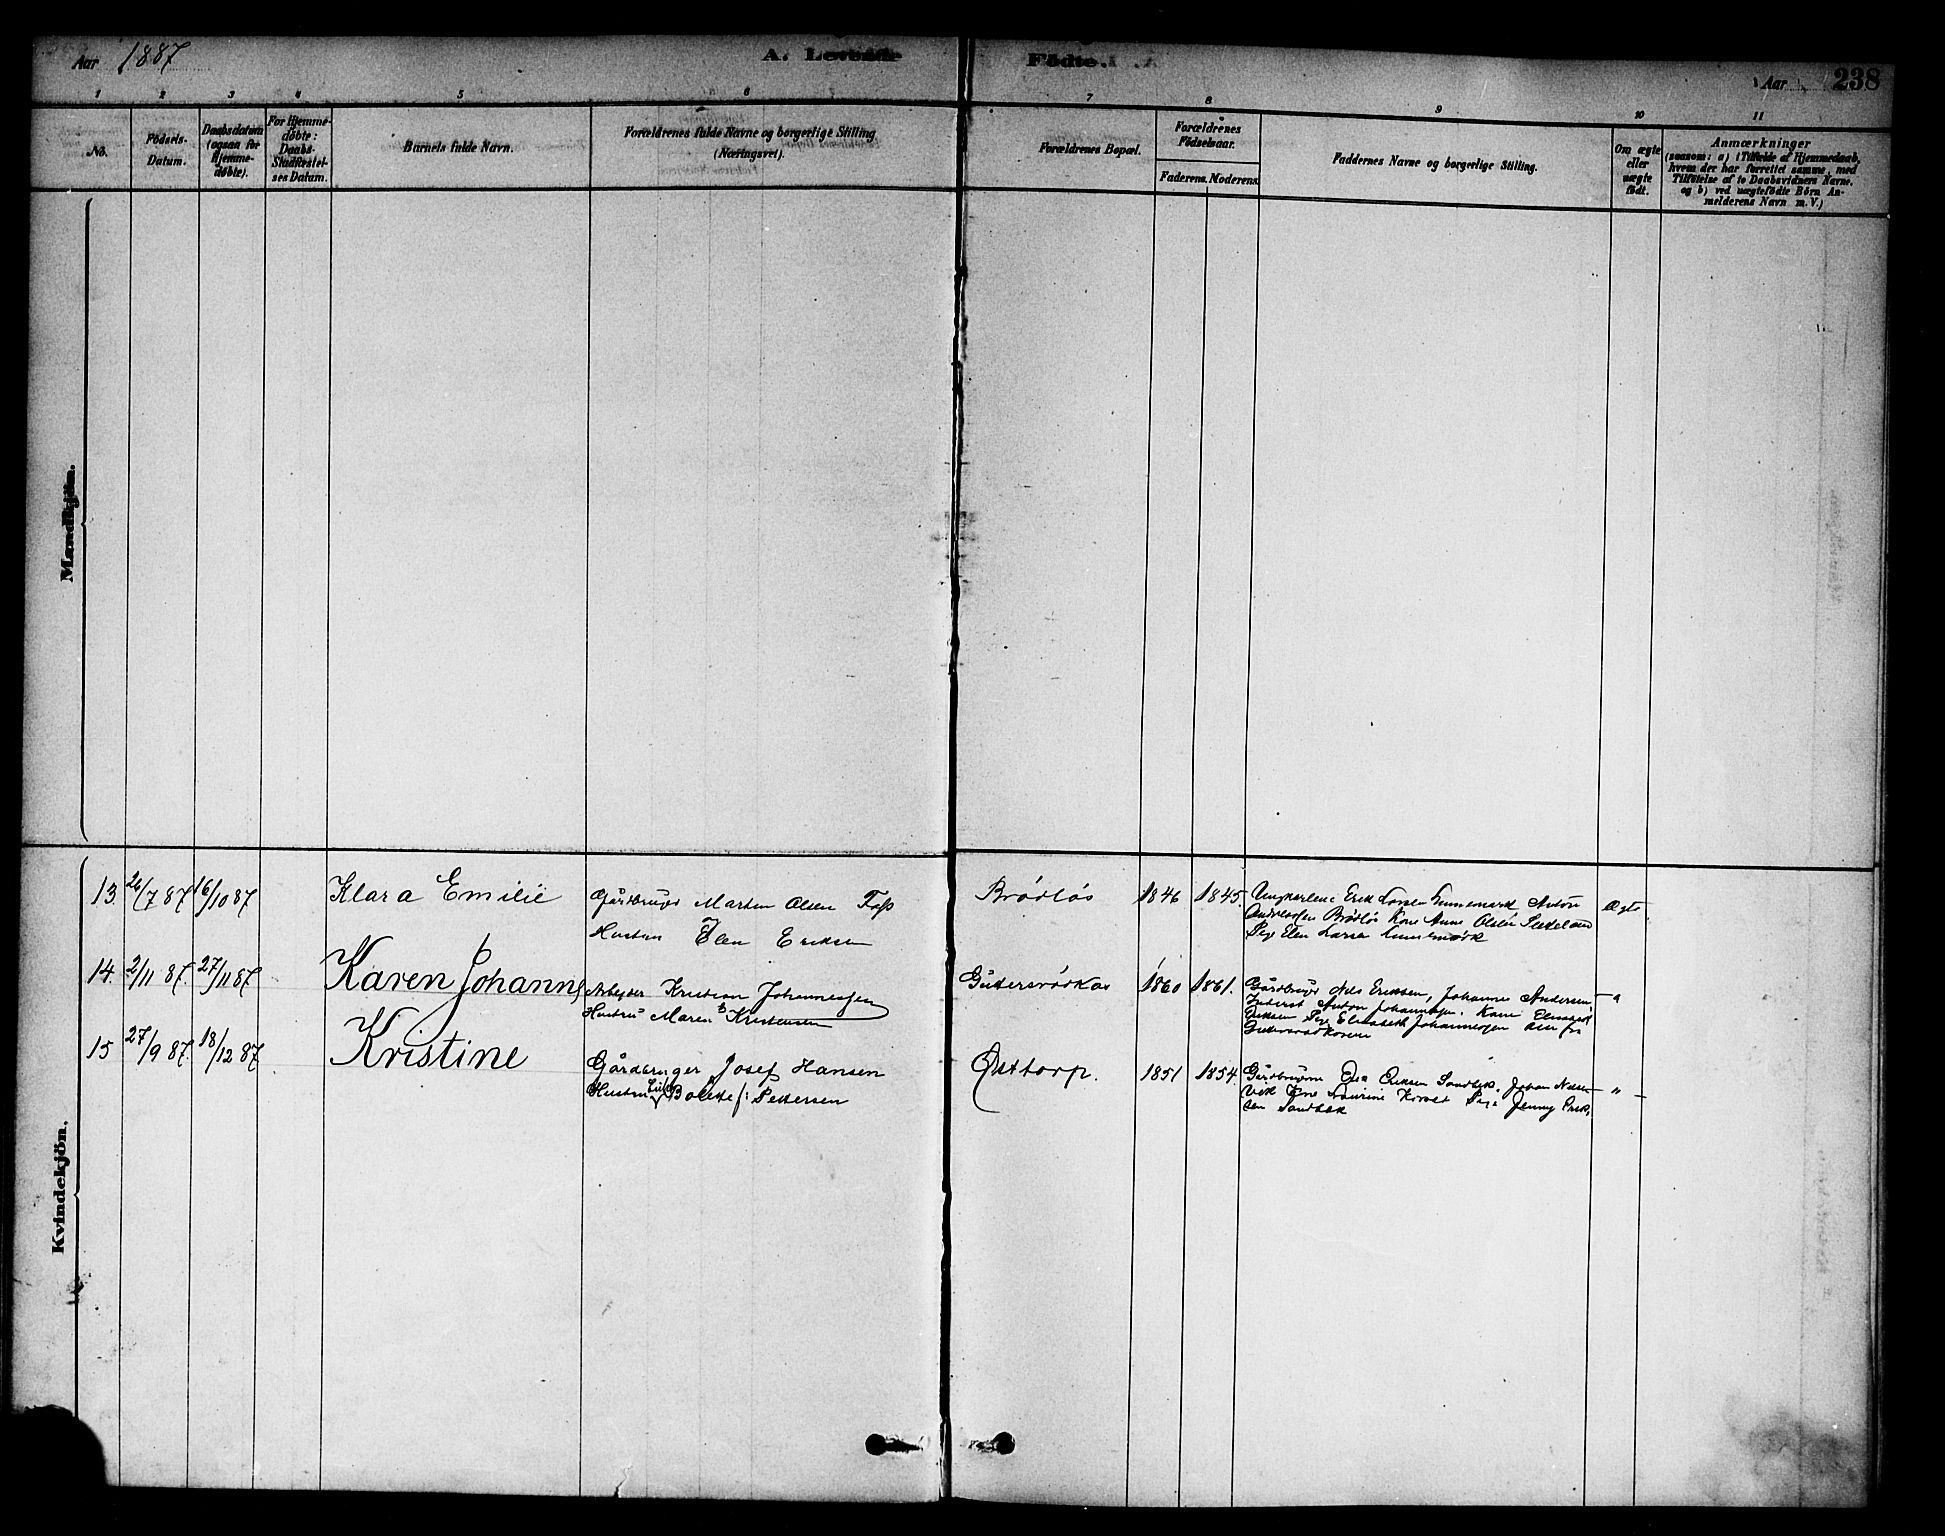 Aar 1887
A. Levende
Födte.
Aar
238
1 2 3 4 5 6 7 8 9 10 11
No.
Födsels-
Datum.
Daabsdatum
(ogsaa for
Hjemme-
døbte).
For Hjemme-
døbte:
Daabs-
Stadfæstel-
ses Datum.
Barnets fulde Navn.
Forældrenes fulde Navne og borgerlige Stilling
(Næringsvei).
Forældrenes Bopæl.
Forældrenes
Födselsaar.
Faderens. Moderens.
Faddernes Navne og borgerlige Stilling.
Om ægte
eller
uægte
födt.
Anmærkninger
(saasom: a) i Tilfælde af Hjemmedaab,
hvem der har forrettet samme, med
Tilföielse af to Daabsvidners Navne,
og b) ved uægtefödte Börn An-
melderens Navn m. V.)
Mandkjön.
Kvindekjön.
13. 26/7 87 16/10 87 Klara Emilie
Gårdbruger Martin Olsen Foss
Hustru Elen Eriksen
Brödlös 1846 1845.
Ungkarlene Erik Larsen Anton
Andreasen Brödlös Kone Anne Olsen
Pige Elen Larsen
Ægte
14. 2/11 87. 27/11 87 Karen Johanne
Arbejder Kristian Johannessen
Hustru Maren Kristensen
1860 1861.
Gårdbruger Nils Eriksen, Johannes Andersen
Inderst Anton Johannessen. Kone
Eriksen Pige Elisabeth Johannessen
"
15 27/9 87. 18/12 87 Kristine
Gårdbruger Josef Hansen
Hustru Bolette f: Pettersen
Østtorp. 1851 1854.
Gårdbrugerne Eriksen Sandbek, Johan Nilsen
Vek Laurine Pige Jenny Erik-
sen Sandbek
"